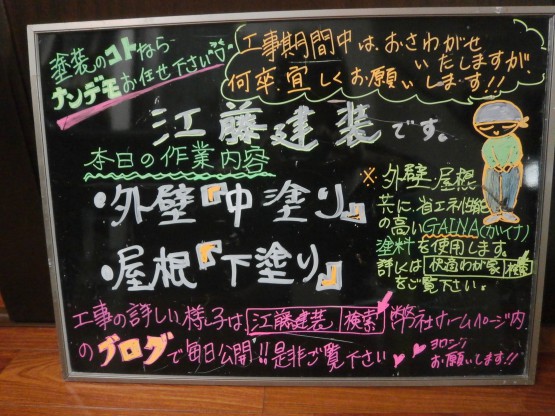 塗装のコトなら
ナンデモお任せ下さい
工事期間中は、おさわがせ
いたしますが、
何卒、宜しくお願いします!!
江藤建装です。
本日の作業内容
•外壁『中塗り』
•屋根『下塗り』
※外壁、屋根
共に、省エネ性能
の高いGAINA(ガイナ)
塗料を使用します。
詳しくは 快適わが家 検索
をご覧下さい。
工事の詳しい様子は 江藤建装 検索 弊社ホームページ内
のブログで毎日公開!!是非ご覧下さい
ヨロシク
お願いします!!